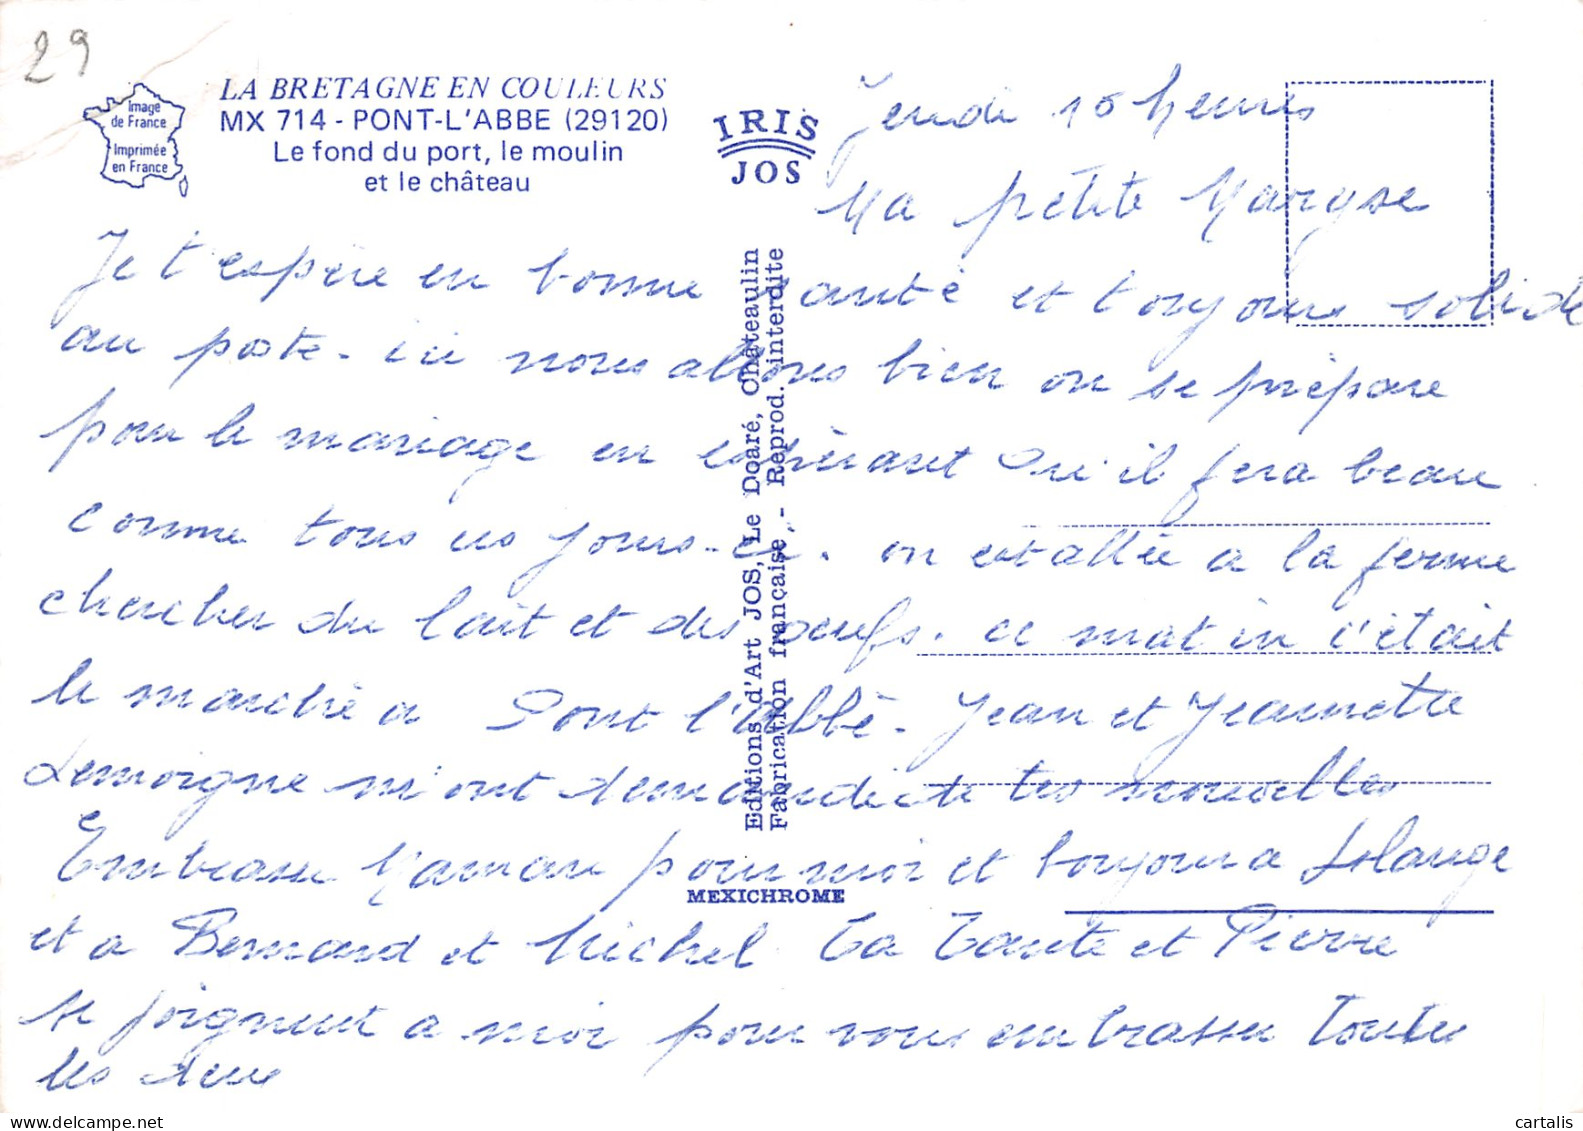 29
Image
de France
Imprimée
en France
LA BRETAGNE EN COULEURS
MX 714 - PONT-L'ABBE (29120)
Le fond du port, le moulin
et le château
IRIS
JOS
Editions d'Art JOS, Le Doaré, Châteaulin
Fabrication française - Reprod. interdite
MEXICHROME
Jeudi 18 heures
Ma petite Maryse
Je t'espère en bonne santé et toujours solide
au poste - ici nous allons bien on se prépare
pour le mariage en espèrant qu'il fera beau
comme tous ces jours-ci. on est allée a la ferme
chercher du lait et des oeufs. ce matin c'était
le marché a Pont l'Abbé. Jean et Jeannette
Lemoigne m'ont demandé de tes nouvelles
Embrasse Maman pour moi et toujours a Solange
et a Bernard et Michel Ta Tante et Pierre
se joignent a moi pour vous embrasser Toutes
les deux
cartalis